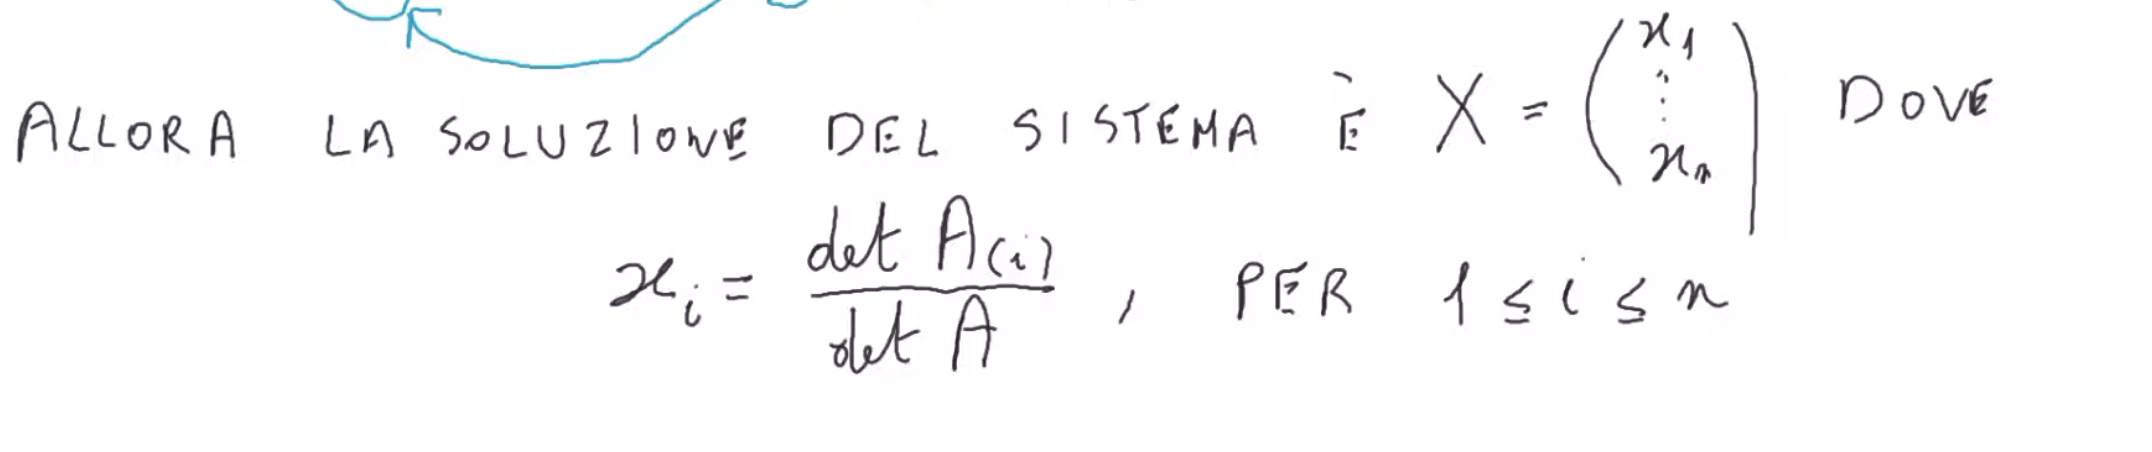 ALLORA LA SOLUZIONE DEL SISTEMA È X = (x₁ ⋮ xₙ) DOVE
xᵢ = det A(i) / det A , PER 1 ≤ i ≤ n